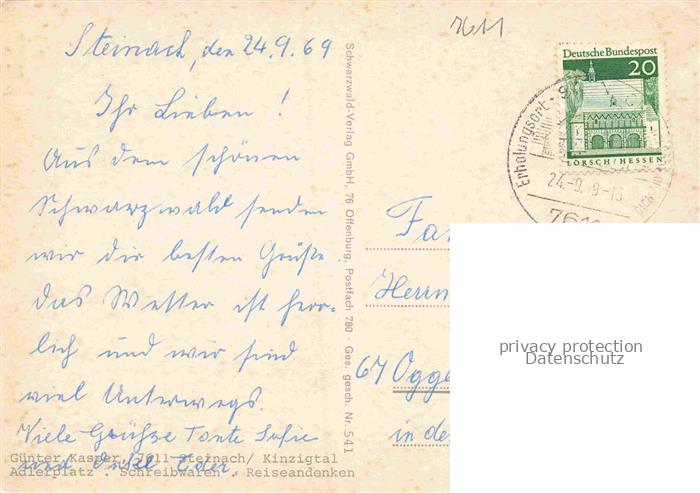 Steinach, den 24.9.69
Ihr Lieben!
Aus dem schönen
Schwarzwald senden
wir die besten Grüße
das Wetter ist herr-
lich und wir sind
viel Unterwegs.
Viele Grühse Tante Sofie
und Onkel
Günter Kasper, 7611 Steinach/ Kinzigtal
Adlerplatz . Schreibwaren . Reiseandenken
Schwarzwald-Verlag GmbH, 76 Offenburg, Postfach 780 · Ges. gesch. Nr. 541
7611
Deutsche Bundespost
20
LORSCH/HESSEN
Erholungsort
24.-9.
7611
Herrn
67 Ogge
in de
privacy protection
Datenschutz